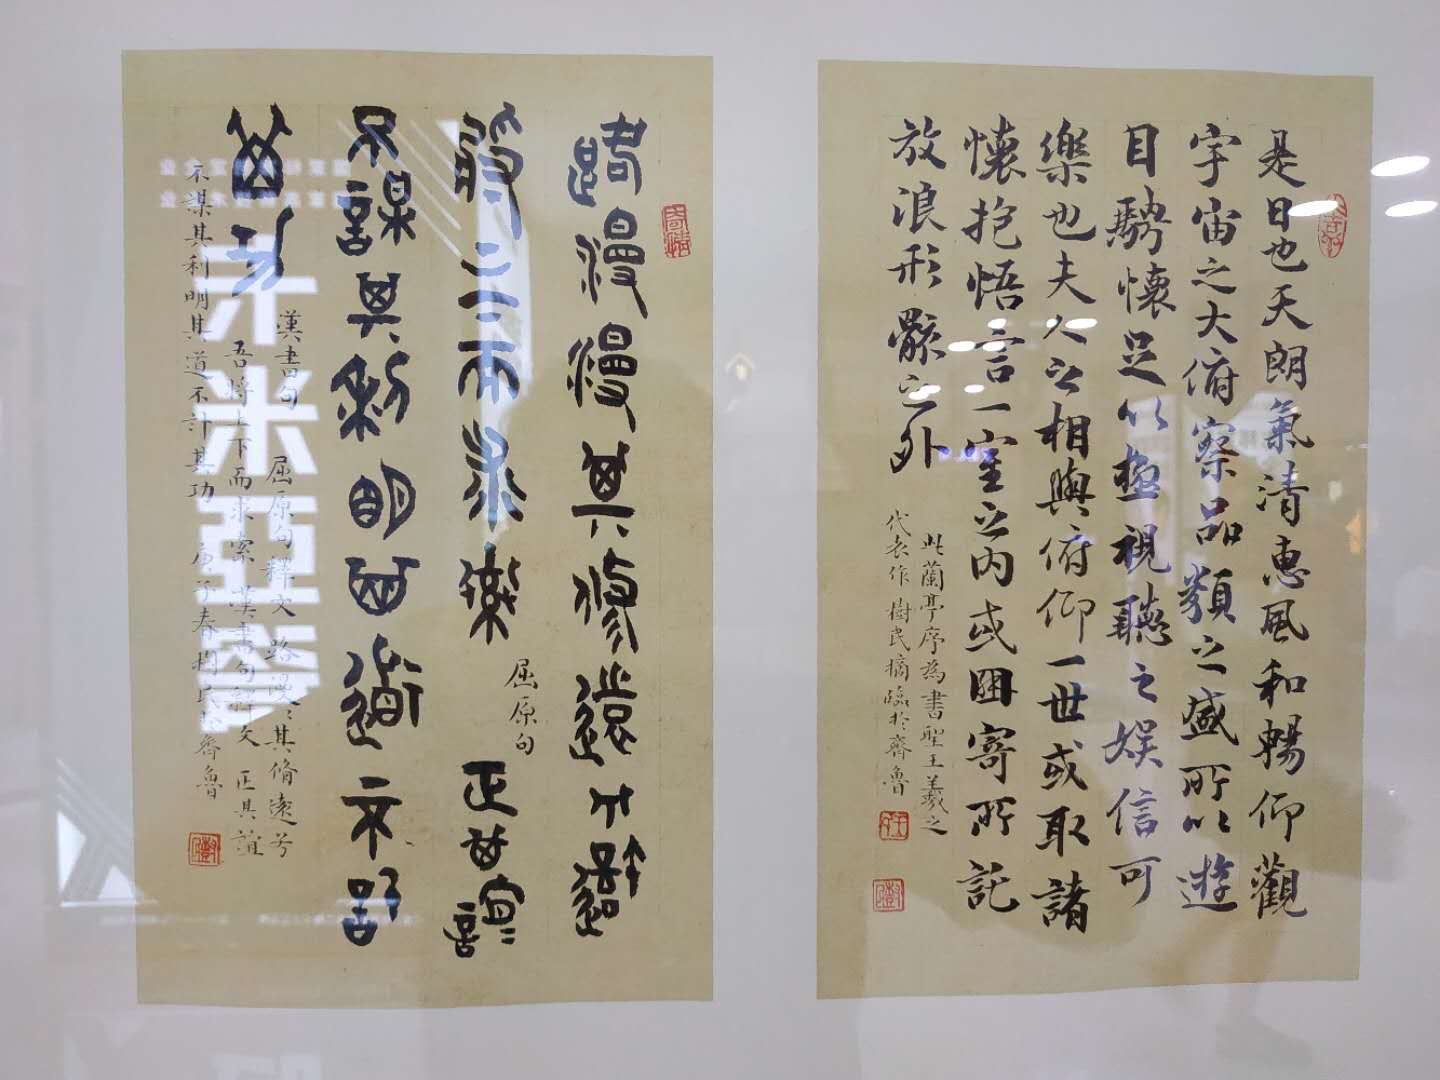 是日也天朗氣清惠風和暢仰觀
宇宙之大俯察品類之盛所以遊
目騁懷足以極視聽之娛信可
樂也夫人之相與俯仰一世或取諸
懷抱悟言一室之內或因寄所託
放浪形骸之外
此蘭亭序為書聖王羲之
代表作樹民摘臨於齊魯
路漫漫其修遠兮吾
將二二而求索
屈原句
正其誼
不謀其利明其道不計
其功
漢書句
屈原句釋文 路漫〻其脩遠兮
吾將上下而求索 漢書句釋文 正其誼
不謀其利明其道不計其功 庚子春樹民 齊魯